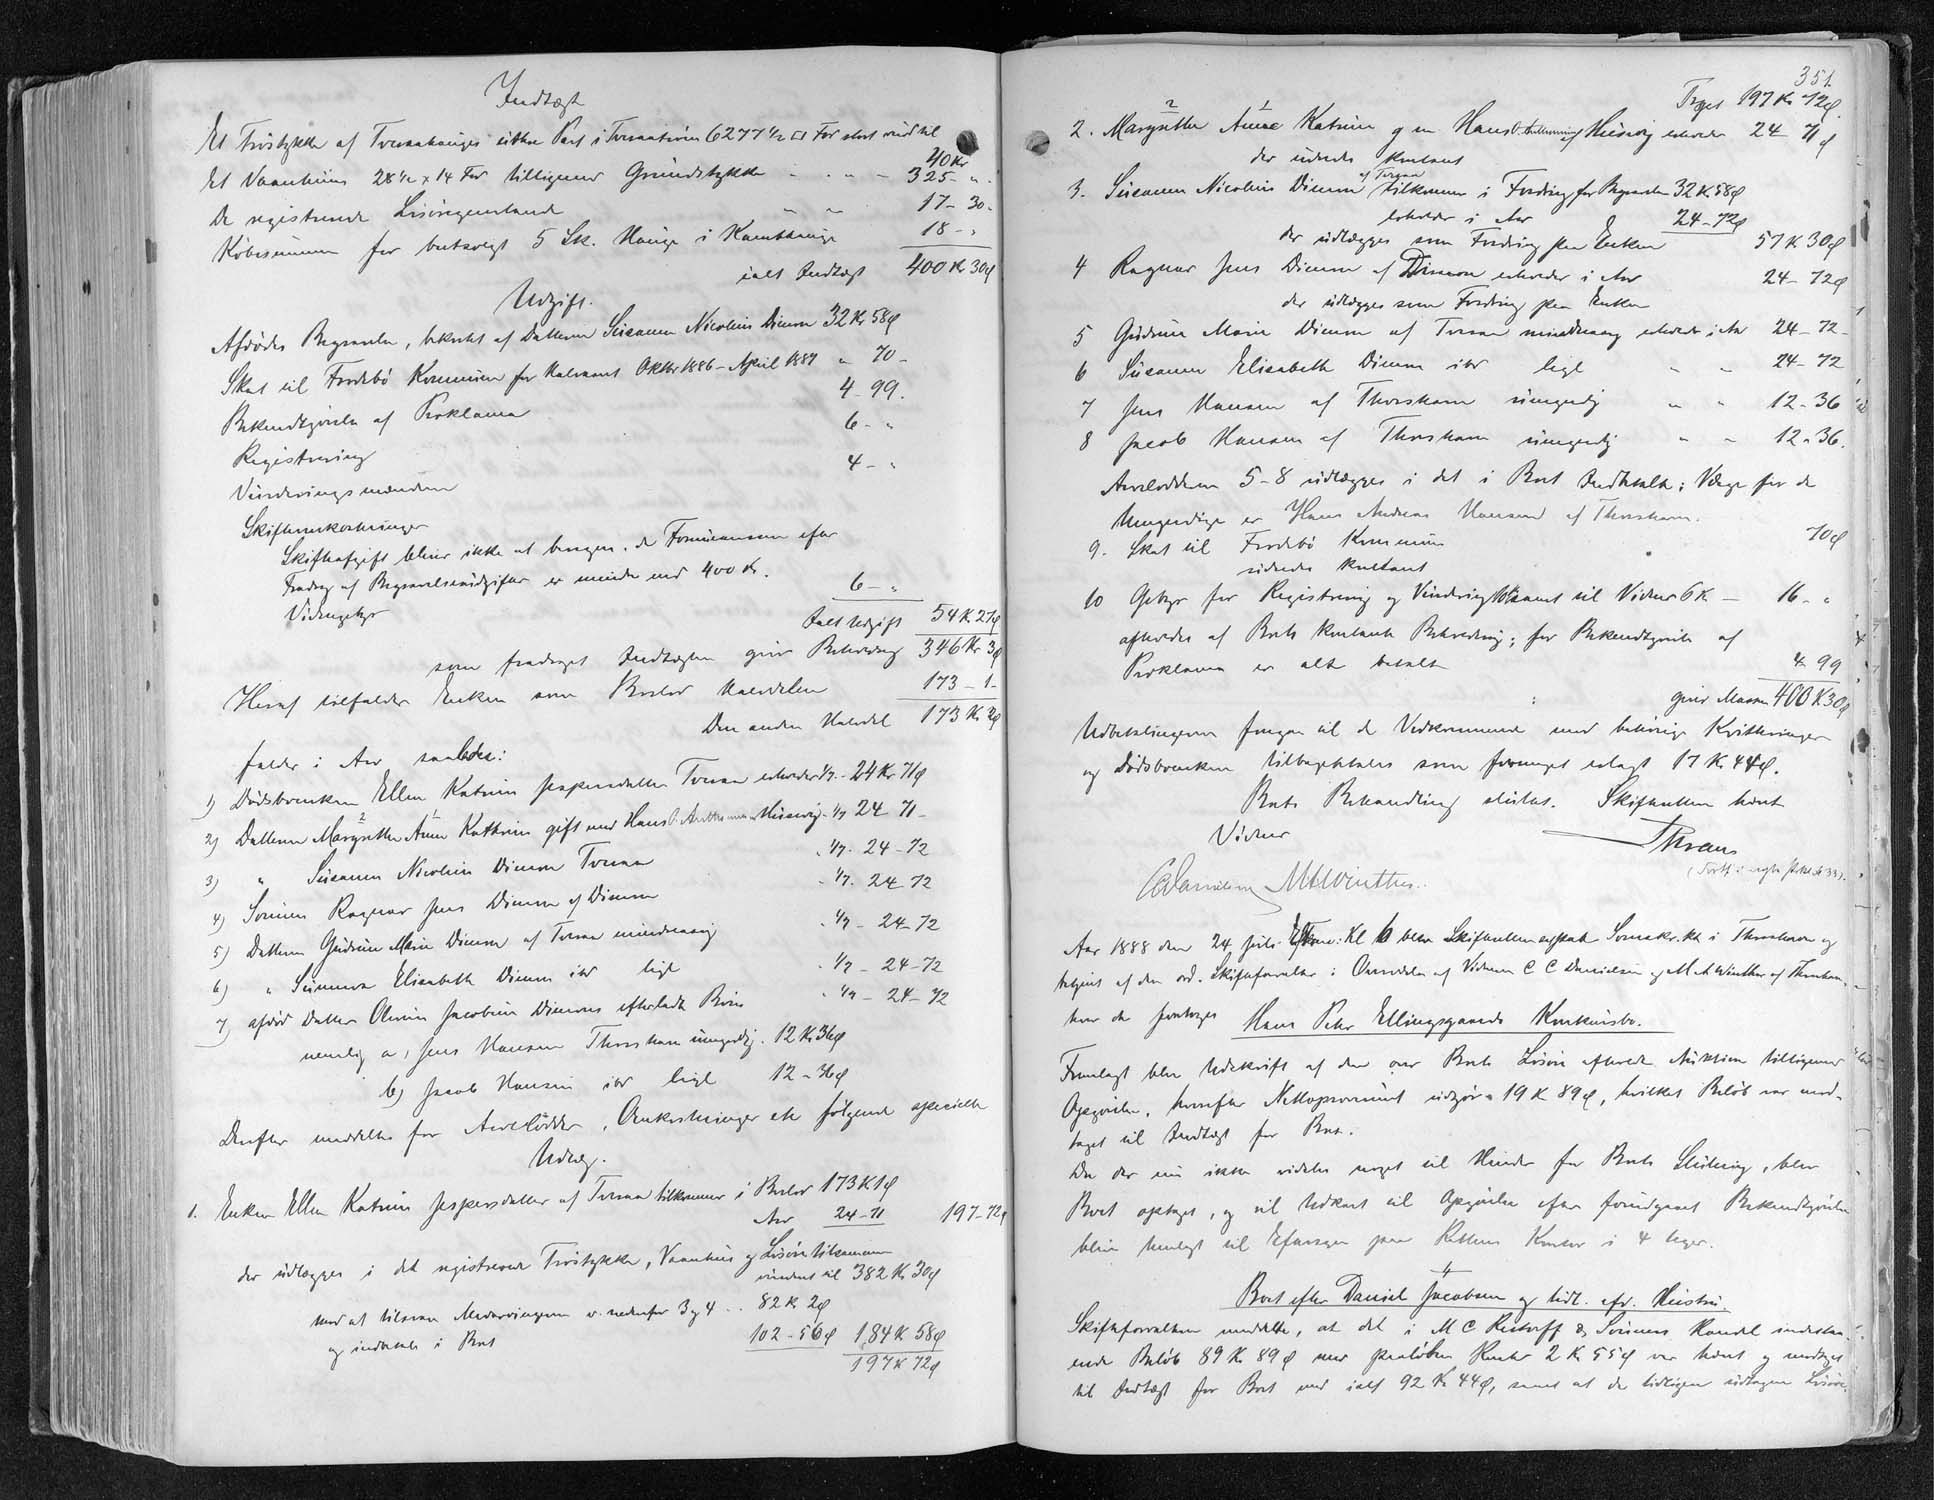 Indtægt
Et Træstykke af Tveraahauges indre Part i Tveraatrøen 6277½ □ Fod stort vurd. til 40 Kr
Et Vaanhuus 28½ x 14 Fod tilligemed Grundstykke - - - 325 - "
De registrerede Løsøregjenstande - - 17 - 30 -
Købesummen for bortsolgt 5 Sk. Hauge i Kambhauge 18 - "
ialt Indtægt 400 K 30 ø
Udgift.
Afdødes Begravelse, bekostet af Datteren Susanne Nicoline Dimon 32 Kr 58 ø
Skat til Frodebø Kommune for Halvaaret Oktbr 1886 - April 1887 " 70 -
Bekendtgørelse af Proklama 4 - 99.
Registrering 6 - "
Vurderingsmændene 4 - "
Skifteomkostninger
Skifteafgift bliver ikke at beregne, da Formuemassen efter
Fradrag af Begravelsesudgifter er mindre end 400 Kr.
Vidnegebyr 6 - "
Ialt Udgift 54 K 27 ø
som fradraget Indtægten giver Beholdning 346 Kr 3 ø
Heraf tilfalder Enken som Boslod Halvdelen 173 - 1 -
Den anden Halvdel 173 Kr 2 ø
falder i Arv saaledes:
1) Dødsboenken Ellen Katrine Jespersdatter Tveraa erholder 1/7 - 24 Kr 71 ø
2) Datteren Margretha Anna Kathrine gift med Hans - 1/7 24 71 -
3) " Susanne Nicoline Dimon Tveraa " 1/7 - 24 - 72
4) Sønnen Ragnar Jens Dimon af Dimon - 1/7 - 24 72
5) Datteren Gudrun Marie Dimon af Tveraa mindreaarig " 1/7 - 24 - 72
6) " Susanna Elisabeth Dimon ibd ligl " 1/7 - 24 - 72
7) afdød Datter Olevine Jacobine Dimons efterladte Børn " 1/7 - 24 - 72
nemlig a) Jens Hansen Thorshavn umyndig. 12 Kr 36 ø
b) Jacob Hansen ibd ligl 12 - 36 ø
Derefter meddeltes for Arvelodder, Omkostninger etc følgende specielle
Udlæg.
1. Enken Ellen Katrine Jespersdatter af Tveraa tilkommer i Boslod 173 K 1 ø
Arv 24 - 71 197 - 72 ø
der udlægges i det registrerede Træstykke, Vaanhus og Løsøre tilsammen
vurderet til 382 Kr 30 ø
mod at tilsvare Medarvingerne v. nedenfor 3 og 4 - - 82 K 2 ø
og indbetale i Boet 102 - 56 ø 184 K 58 ø
197 K 72 ø
351.
Trspt 197 Kr 72 ø.
2. Margretha Anna Katrine g m Hans erholder 24 - 71 ø
der udredes kontant
3. Susanne Nicoline Dimon af Tveraa tilkommer i Fordring for Begravelse 32 K 58 ø
erholder i Arv 24 - 72 ø
der udlægges som Fordring paa Enken 57 K 30 ø
4 Ragnar Jens Dimon af Dimon erholder i Arv 24 - 72 ø
der udlægges som Fordring paa Enken
5 Gudrun Marie Dimon af Tveraa mindreaarig erholder i Arv 24 - 72 -
6 Susanne Elisabeth Dimon ibd ligl " " 24 - 72
7 Jens Hansen af Thorshavn umyndig " " 12 - 36
8 Jacob Hansen af Thorshavn umyndig " " 12 - 36.
Arvelodderne 5 - 8 udlægges i det i Boet Indbetalte; Værge for de
Umyndige er Hans Andreas Hansen af Thorshavn.
9. Skat til Frodebø Kommune 70 ø
udredes kontant
10 Gebyr for Registrering og Vurdering 10 K samt til Vidner 6 K - 16 - "
afholdes af Boets kontante Beholdning; for Bekendtgørelse af
Proklama er alt betalt 4 99
giver Massen 400 K 30 ø
Udbetalingerne foregaa til de Vedkommende mod behørige Kvitteringer
og Dødsboenken tilbagebetales som formeget erlagt 17 Kr 44 ø.
Boets Behandling sluttet. Skifteretten hævet
Vidner
CC Danielsen MAWinther.
Aar 1888 den 24 Juli Eftm: Kl 6 blev Skifteretten ersat Sorenskr. ktr i Thorshavn og
betjent af den ord. Skifteforvalter i Overværelse af Vidnerne C C Danielsen og M A Winther af Thorshavn,
hvor da foretoges Hans Peter Ellingsgaards Konkursbo.
Fremlagt blev Udskrift af den over Boets Løsøre afholdte Auktion tilligemed
Opgørelse, hvorefter Nettoprovenuet udgør 19 K 89 ø, hvilket Beløb var mod-
taget til Indtægt for Boet.
Da der nu ikke vides noget til Hinder for Boets Slutning, blev
Boet optaget, og vil Udkast til Opgørelse efter forudgaaet Bekendtgørelse
blive henlagt til Eftersyn paa Rettens Kontor i 4 Uger.
Boet efter Daniel Jacobsen og tidl. afd. Hustru.
Skifteforvalteren meddelte, at det i M C Restorff & Sønners Handel indestaa-
ende Beløb 89 Kr 89 ø med paaløbne Renter 2 Kr 55 ø var hævet og modtaget
til Indtægt for Boet med ialt 92 Kr 44 ø, samt at de tidligere udtagne Løsøre-